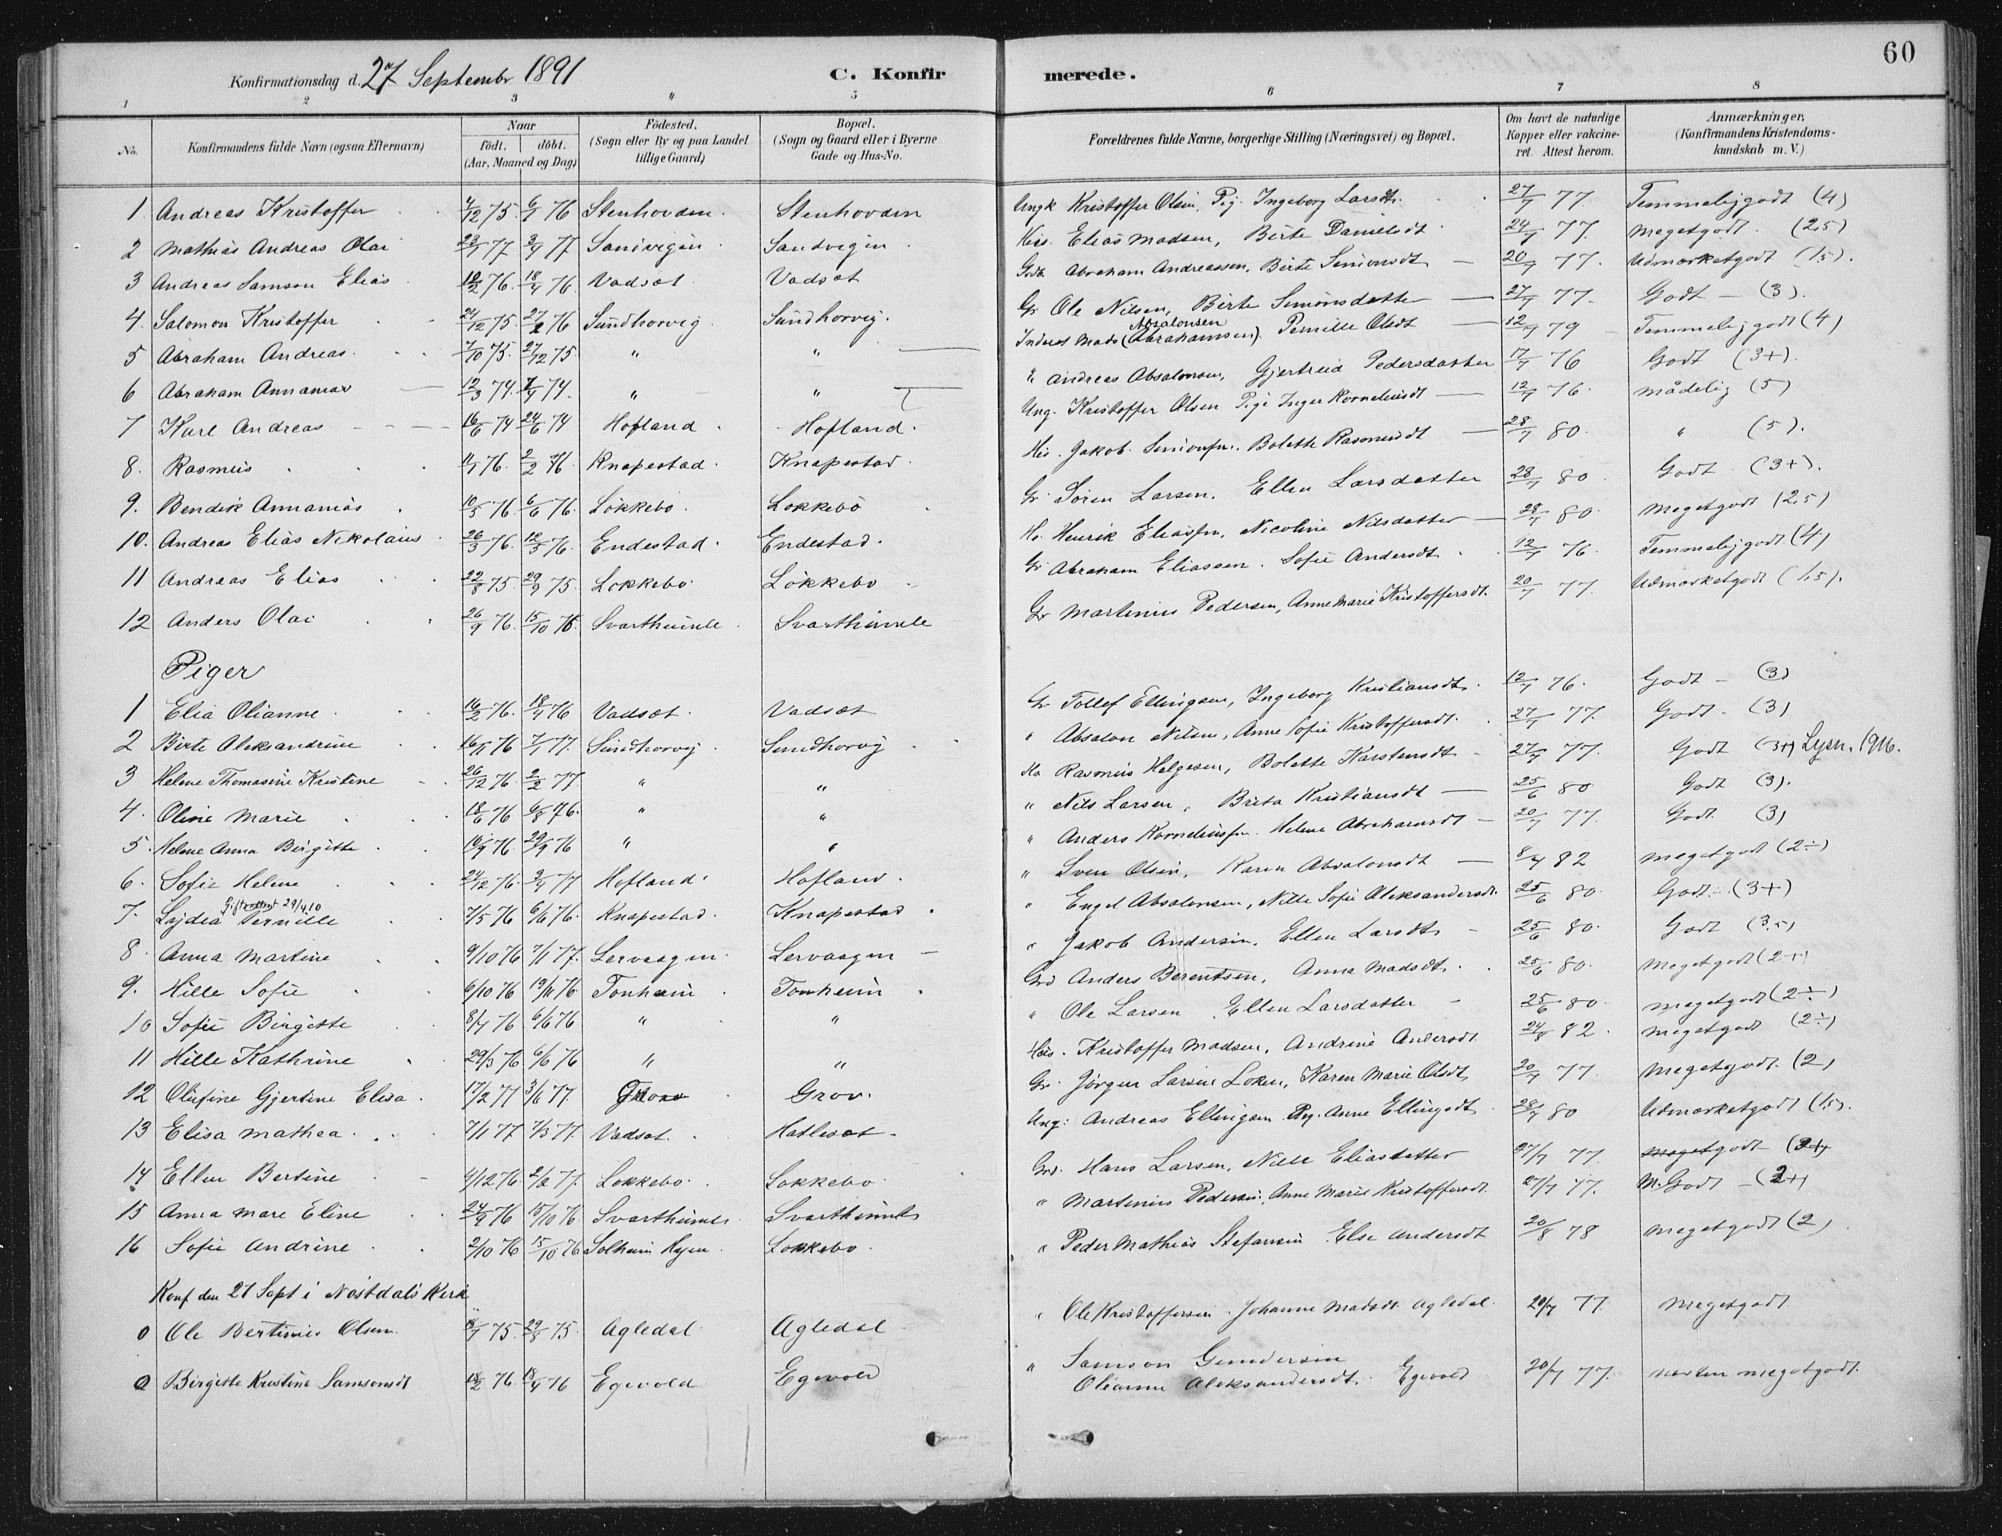 60
Konfirmationsdag d. 27 September 1891 C. Konfirmerede.
1 2 3 " 5 6 7 8
No. Konfirmandens fulde Navn (ogsaa Efternavn) Naar født. døbt. (Aar, Maaned og Dag) Fødested. (Sogn eller By og paa Landet tillige Gaard) Bopæl. (Sogn og Gaard eller i Byerne Gade og Hus-No. Forældrenes fulde Navne, borgerlige Stilling (Næringsvei) og Bopæl. Om havt de naturlige Kopper eller vakcineret. Attest herom. Anmærkninger. (Konfirmandens Kristendomskundskab m. V.)
1 Andreas Kristoffer 4/12 75. 6/1 76 Stenhovden Stenhovden Ungk Kristoffer Olsen, Pig. Ingeborg Larsdt. 27/7 77. Temmeligodt (4)
2 Mathias Andreas Olai 23/1 77 3/4 77 Sandvegin Sandvegin Hus. Elias Madsen, Birte Danielsdt 24/7 77. megetgodt (2,5)
3 Andreas Samson Elias 12/2 76. 18/4 76. Vadset Vadset Gdb Abraham Andreassen, Birte Simonsdt 20/7 77. Udmerketgodt (1,5).
4. Salomon Kristoffer 24/12 75 27/2 76 Sundhorvig Sundhorvig. Gr Ole Nilsen, Birte Simonsdatter 27/7 77. Godt - (3).
5 Abraham Andreas 7/10 75. 27/12 75. " " Inderst Mads (Abrahamsen) Absalonsen Pernille Olsdt 12/7 79 Temmeligodt (4)
6 Abraham Annanias 12/3 74. 7/4 74. " " " Andreas Absalonsen, Gjertrud Pedersdatter 17/7 76 Godt (3+).
7 Karl Andreas 16/5 74 24/6 74 Hofland Hofland. Ung. Kristoffer Olsen Pige Inger Korneliusdt 12/7 76. mådelig (5)
8. Rasmus 11/1 76. 2/2 76 Knapestad. Knapestad. His. Jakob Simonsen. Bolette Rasmusdt 28/7 80. " (5).
9. Bendik Annanias 10/5 76. 6/6 76. Løkkebo. Løkkebo Gr. Søren Larsen, Ellen Larsdatter 28/7 80. Godt (3+).
10. Andreas Elias Nikolaus 26/3 76. 12/5 76. Endestad. Endestad. H. Henrik Eliassen, Nicoline Nilsdatter 28/7 80. megetgodt (2,5)
11 Andreas Elias 22/8 75 29/9 75. Løkkebo Løkkebo Gr Abraham Eliassen. Sofie Andersdt 12/7 76. Temmeligodt (4)
12 Anders Olai 26/9 76. 15/10 76. Svarthumle Svarthumle Gr Martinus Pedersen, Anne Marie Kristoffersdt. 20/7 77 Udmerketgodt (1,5).
Piger
1 Elia Olianne 16/2 76. 18/4 76 Vadset. Vadset Gr Tollef Ellingsen, Ingeborg Kristiansdt. 12/7 76. Godt - (3)
2 Birte Aleksandrine 16/11 76 7/1 77. Sundhorvig Sundhorvig " Absalon Nilsen, Anne Sofie Kristoffersdt. 27/7 77. Godt (3)
3 Helene Thomasine Kristine 26/12 76. 2/2 77. " " Ho Rasmus Helgesen, Bolette Karstensdt 27/7 77 Godt (3+) Lysn. 1916.
4. Oline Marie 18/6 76 6/8 76. " " " Nils Larsen, Brita Kristiansdt 25/6 80 Godt (3).
5. Helene Anna Birgitte 10/9 76 29/9 76 " " " Anders Korneliussen. Helene Abrahamsdt 20/7 77. Godt (3)
6. Sofie Helene 24/12 76. 3/4 77 Hofland Hofland. " Sven Olsen, Karen Absalonsdt 8/7 82 megetgodt (2÷)
7. Lydea Pernille Giftattest 29/4 10 7/5 76 6/6 76. Knapestad. Knapestad " Engel Absalonsen, Nille Sofie Aleksandersdt. 25/6 80. Godt (3+)
8. Anna Martine 9/10 76 7/1 77. Lervaagen Lervaagen " Jakob Andersen. Ellen Larsdt 25/6 80. Godt (3,5)
9. Hille Sofie 6/10 76 19/11 76 Tonheim Tonheim Grd Anders Berentsen, Anna Madsdt. 25/6 80. Megetgodt (2+)
10 Sofie Birgitte 8/4 76 6/6 76 " " " Ole Larsen Ellen Larsdatter 25/6 80. megetgodt (2÷)
11 Hille Kathrine 29/3 76 6/6 76 " " His. Kristoffer Madsen, Andrine Andersdt 24/8 82. megetgodt (2÷)
12 Olufine Gjertine Elisa. 17/2 77 3/6 77. Grov Grov. Gr. Jørgen Larsen Loken, Karen Marie Olsdt 20/7 77. Megetgodt. (2)
13 Elisa Mathea 7/1 77 7/3 77. Vadset. Hatleset Ung: Andreas Ellingsen Pig. Anne Ellingsdt 28/7 80 Udmerketgodt (1,5).
14 Ellen Bertine 4/12 76. 2/2 77. Løkkebo. Løkkebo Grd. Hans Larsen, Nille Eliasdatter 27/7 77 megetgodt (2+
15 Anna Mare Eline 24/9 76 15/10 76 Svarthumle Svarthumle " Martinus Pedersen. Anne Marie Kristoffersdt. 27/7 77. M. Godt - (2+)
16 Sofie Andrine 2/10 76 15/10 76 Solheim Hyen Løkkebo. " Peder Mathias Stefansen Else Andersdt 20/8 78 megetgodt (2)
Konf den 21 Sept i Nøstdals Kirk
0 Ole Bertinus Olsen 18/7 75. 29/8 75 Agledal Agledal " Ole Kristoffersen. Johanne Madsdt Agledal. 20/7 77. Megetgodt
0 Birgitte Kristine Samsonsdt 18/2 76. 18/4 76 Egevold Egevold " Samson Gundersen Olianne Aleksandersdt. Egevold 20/7 77. nesten megetgodt.